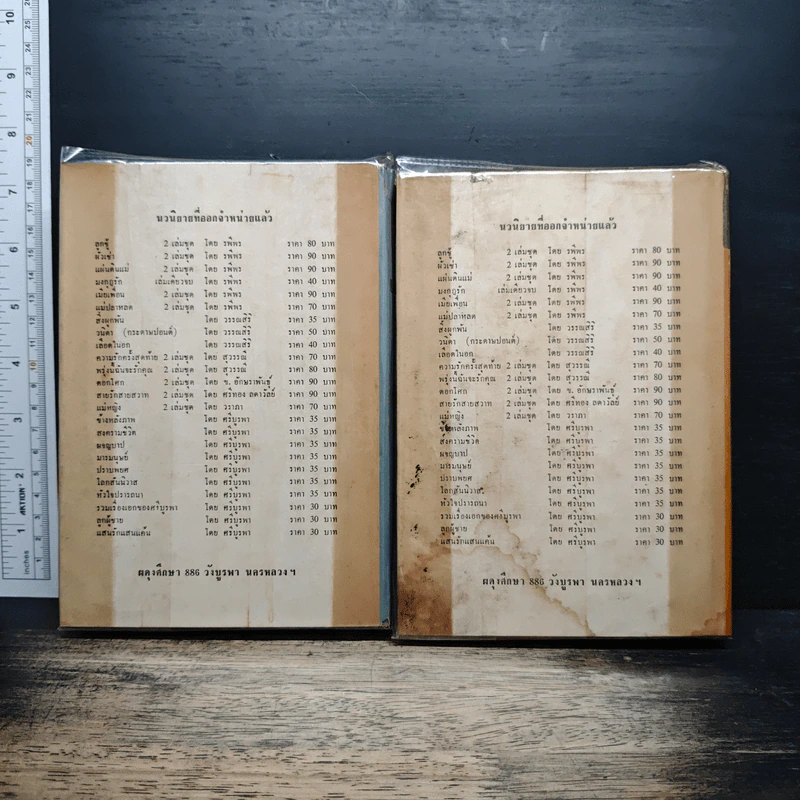 นวนิยายที่ออกจำหน่ายแล้ว
ลูกชู้ 2 เล่มชุด โดย รพีพร ราคา 80 บาท
ผัวเช่า 2 เล่มชุด โดย รพีพร ราคา 90 บาท
แผ่นดินแม่ 2 เล่มชุด โดย รพีพร ราคา 90 บาท
มงกุฎรัก เล่มเดียวจบ โดย รพีพร ราคา 40 บาท
เมียเพื่อน 2 เล่มชุด โดย รพีพร ราคา 90 บาท
แม่ปลาหลด 2 เล่มชุด โดย รพีพร ราคา 70 บาท
สิ่งผูกพัน โดย วรรณสิริ ราคา 35 บาท
วนิดา (กระดาษปอนด์) โดย วรรณสิริ ราคา 50 บาท
เลือดในอก โดย วรรณสิริ ราคา 40 บาท
ความรักครั้งสุดท้าย 2 เล่มชุด โดย สุวรรณี ราคา 70 บาท
พรุ่งนี้ฉันจะรักคุณ 2 เล่มชุด โดย สุวรรณี ราคา 80 บาท
ดอกโศก 2 เล่มชุด โดย ข. อักษราพันธุ์ ราคา 90 บาท
สายรักสายสวาท 2 เล่มชุด โดย ศรีทอง ลดาวัลย์ ราคา 90 บาท
แม่หญิง 2 เล่มชุด โดย วราภา ราคา 70 บาท
ข้างหลังภาพ โดย ศรีบูรพา ราคา 35 บาท
สงครามชีวิต โดย ศรีบูรพา ราคา 35 บาท
ผจญบาป โดย ศรีบูรพา ราคา 35 บาท
มารมนุษย์ โดย ศรีบูรพา ราคา 35 บาท
ปราบพยศ โดย ศรีบูรพา ราคา 35 บาท
โลกสันนิวาส โดย ศรีบูรพา ราคา 35 บาท
หัวใจปรารถนา โดย ศรีบูรพา ราคา 35 บาท
รวมเรื่องเอกของศรีบูรพา โดย ศรีบูรพา ราคา 30 บาท
ลูกผู้ชาย โดย ศรีบูรพา ราคา 30 บาท
แสนรักแสนแค้น โดย ศรีบูรพา ราคา 30 บาท
ผดุงศึกษา 886 วังบูรพา นครหลวงฯ
นวนิยายที่ออกจำหน่ายแล้ว
ลูกชู้ 2 เล่มชุด โดย รพีพร ราคา 80 บาท
ผัวเช่า 2 เล่มชุด โดย รพีพร ราคา 90 บาท
แผ่นดินแม่ 2 เล่มชุด โดย รพีพร ราคา 90 บาท
มงกุฎรัก เล่มเดียวจบ โดย รพีพร ราคา 40 บาท
เมียเพื่อน 2 เล่มชุด โดย รพีพร ราคา 90 บาท
แม่ปลาหลด 2 เล่มชุด โดย รพีพร ราคา 70 บาท
สิ่งผูกพัน โดย วรรณสิริ ราคา 35 บาท
วนิดา (กระดาษปอนด์) โดย วรรณสิริ ราคา 50 บาท
เลือดในอก โดย วรรณสิริ ราคา 40 บาท
ความรักครั้งสุดท้าย 2 เล่มชุด โดย สุวรรณี ราคา 70 บาท
พรุ่งนี้ฉันจะรักคุณ 2 เล่มชุด โดย สุวรรณี ราคา 80 บาท
ดอกโศก 2 เล่มชุด โดย ข. อักษราพันธุ์ ราคา 90 บาท
สายรักสายสวาท 2 เล่มชุด โดย ศรีทอง ลดาวัลย์ ราคา 90 บาท
แม่หญิง 2 เล่มชุด โดย วราภา ราคา 70 บาท
ข้างหลังภาพ โดย ศรีบูรพา ราคา 35 บาท
สงครามชีวิต โดย ศรีบูรพา ราคา 35 บาท
ผจญบาป โดย ศรีบูรพา ราคา 35 บาท
มารมนุษย์ โดย ศรีบูรพา ราคา 35 บาท
ปราบพยศ โดย ศรีบูรพา ราคา 35 บาท
โลกสันนิวาส โดย ศรีบูรพา ราคา 35 บาท
หัวใจปรารถนา โดย ศรีบูรพา ราคา 35 บาท
รวมเรื่องเอกของศรีบูรพา โดย ศรีบูรพา ราคา 30 บาท
ลูกผู้ชาย โดย ศรีบูรพา ราคา 30 บาท
แสนรักแสนแค้น โดย ศรีบูรพา ราคา 30 บาท
ผดุงศึกษา 886 วังบูรพา นครหลวงฯ